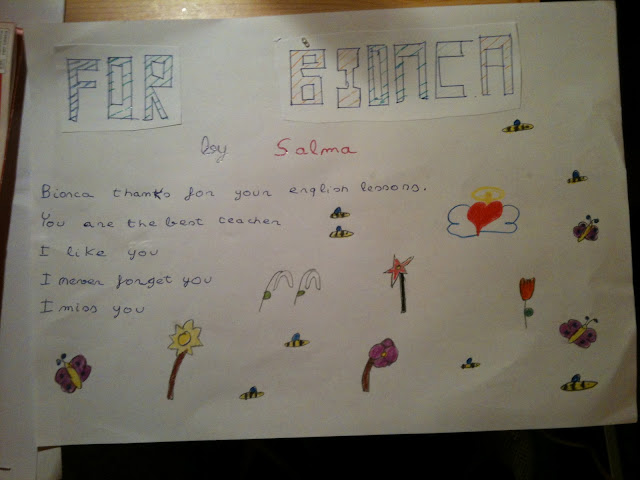 FOR BIANCA
by Salma
Bianca thanks for your english lessons.
You are the best teacher
I like you
I never forget you
I miss you